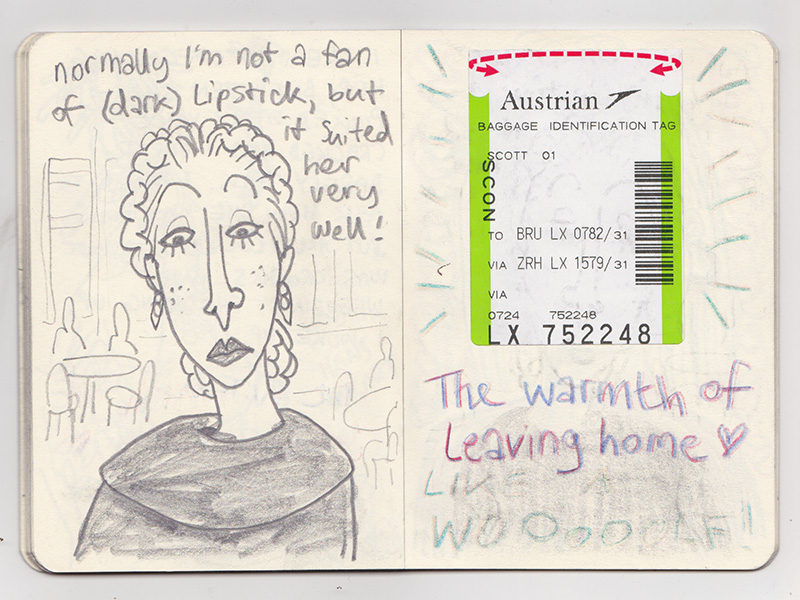 normally I'm not a fan
of (dark) Lipstick, but
it suited
her
very
well!
Austrian
BAGGAGE IDENTIFICATION TAG
SCOTT 01
SCON
TO BRU LX 0782/31
VIA ZRH LX 1579/31
VIA
0724 752248
LX 752248
The warmth of
Leaving home
LIKE A
WOOooOOLF!